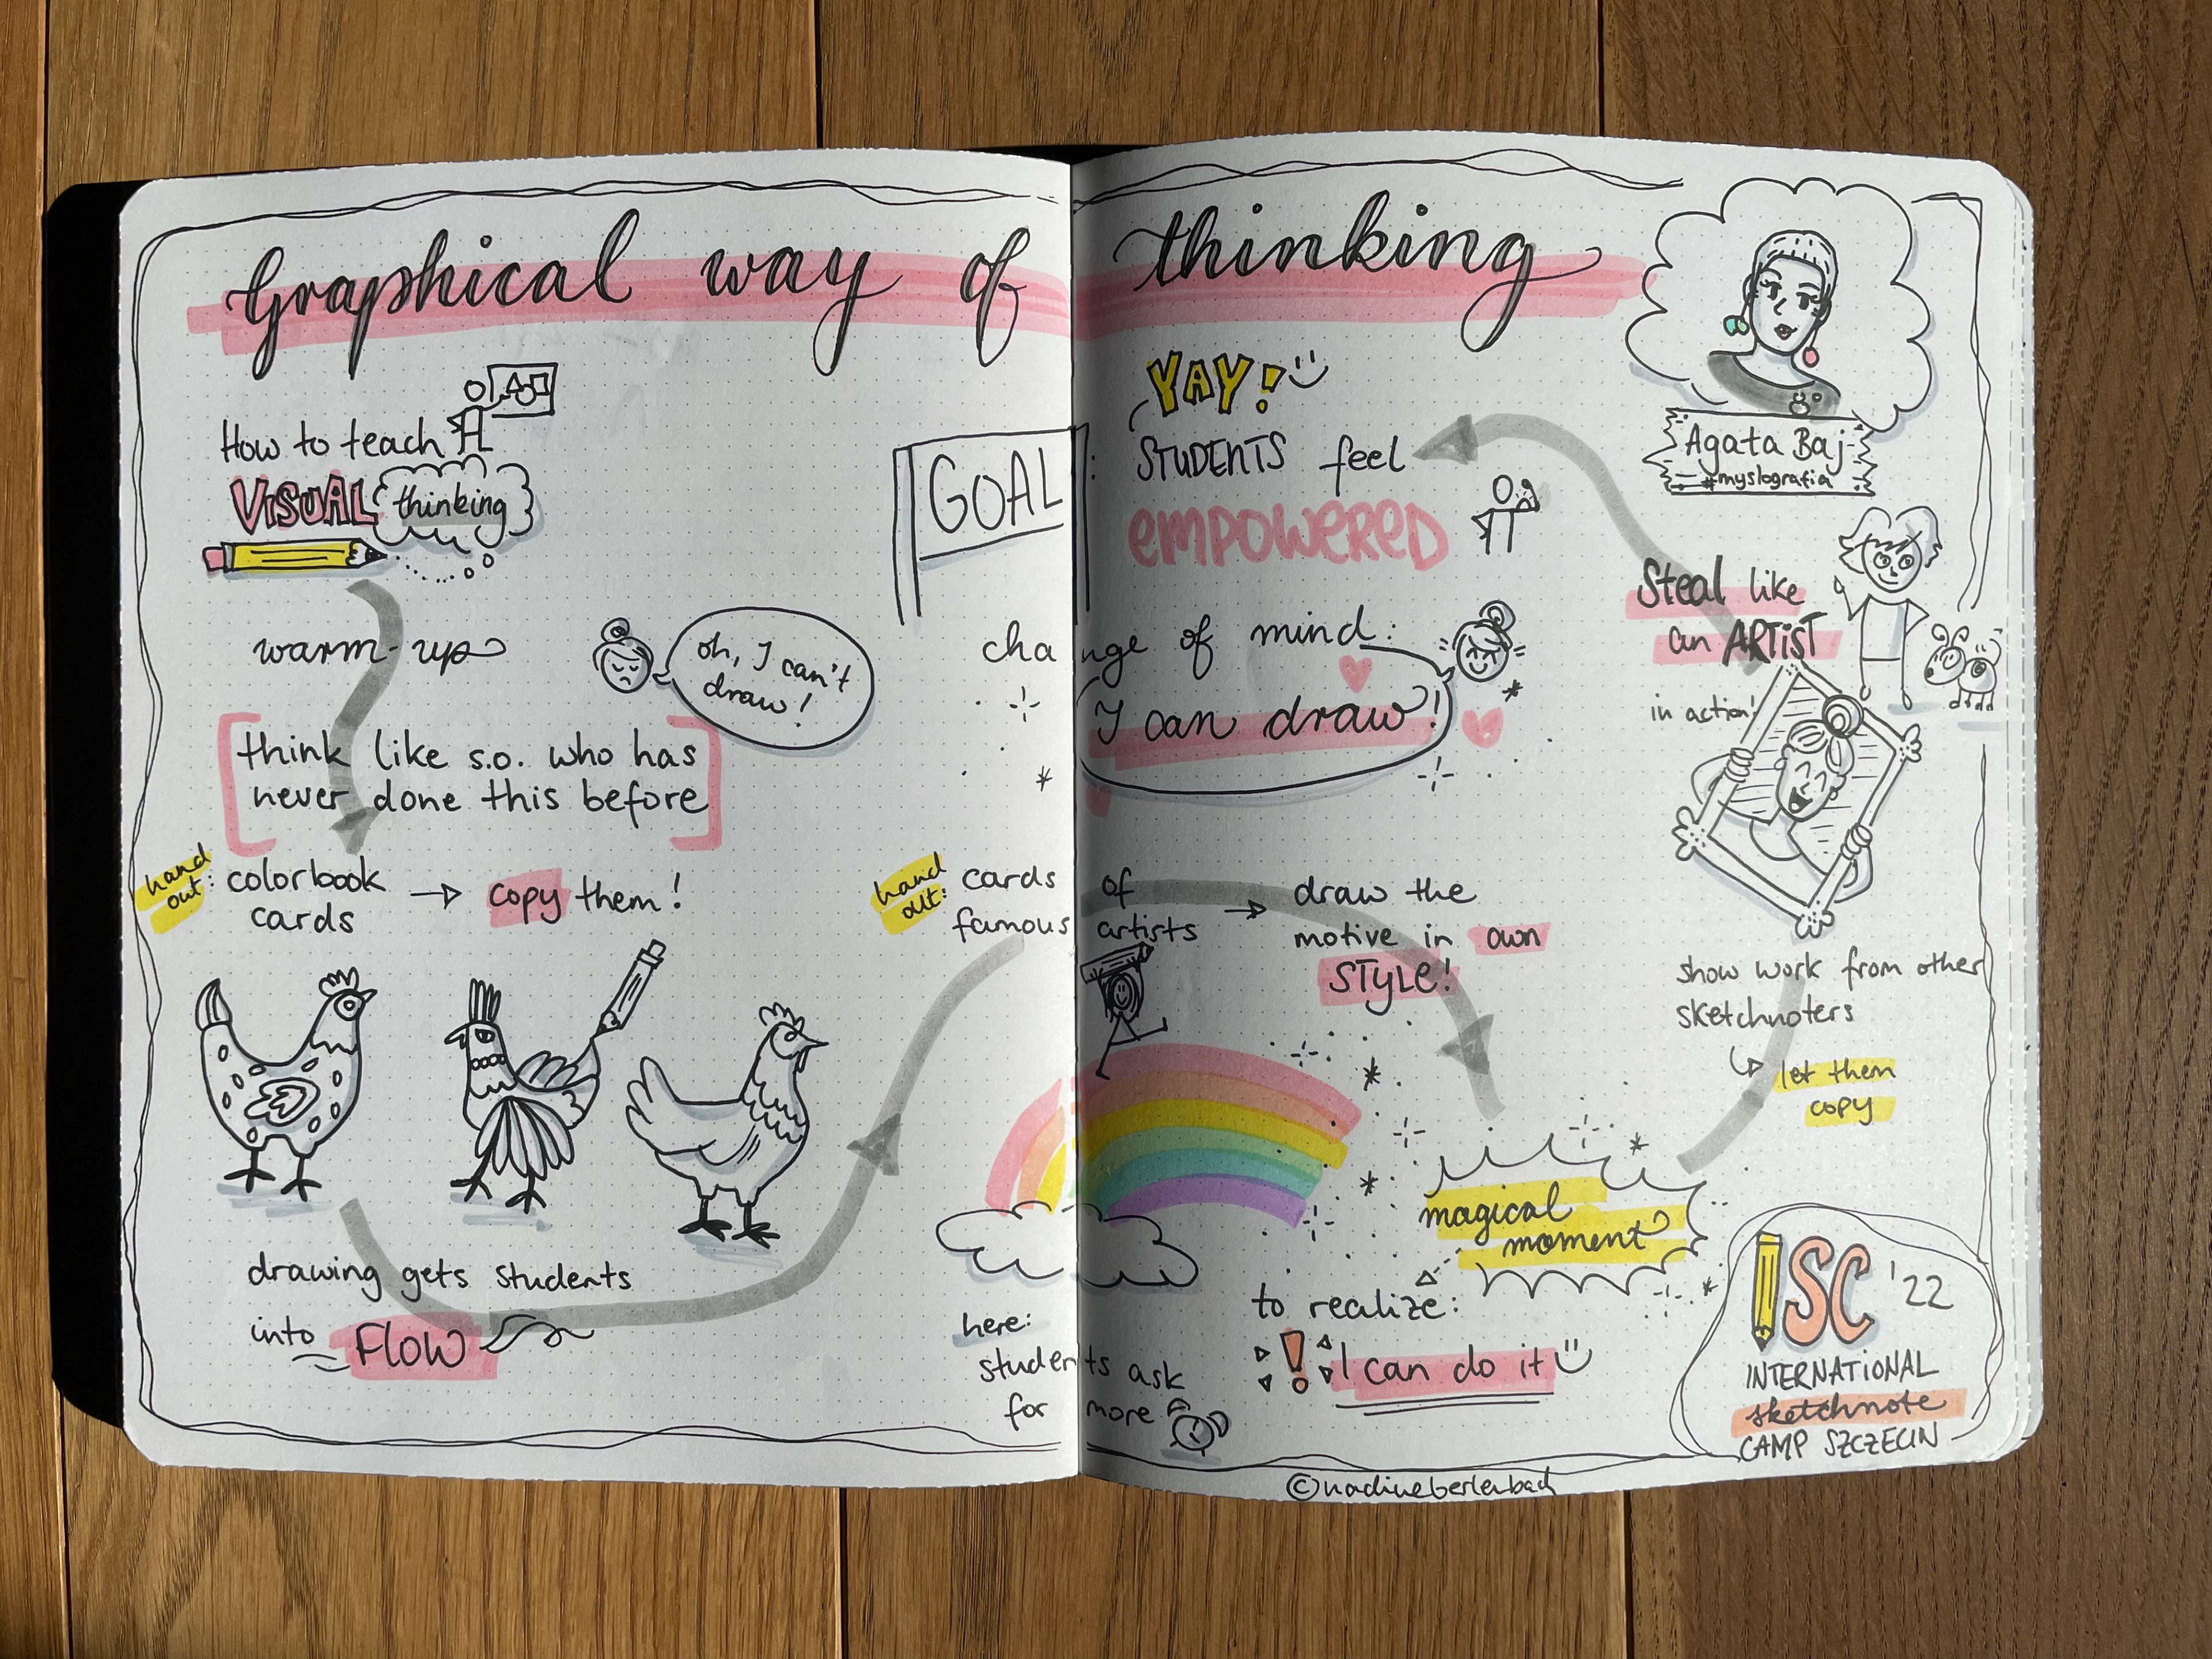 Graphical way of thinking
How to teach
VISUAL thinking
warm-up
oh, I can't
draw!
[think like s.o. who has
never done this before]
hand
out: colorbook
cards → copy them!
drawing gets students
into FLOW
GOAL:
YAY!
STUDENTS feel
EMPOWERED
change of mind:
I can draw!
hand
out: cards of
famous artists
→ draw the
motive in own
STYLE!
here:
students ask
for more
magical
moment
to realize:
! I can do it
Agata Baj
#myslografia
Steal like
an ARTiST
in action!
show work from other
sketchnoters
let them
copy
ISC '22
INTERNATIONAL
sketchnote
CAMP SZCZECIN
©nadineberlenbach